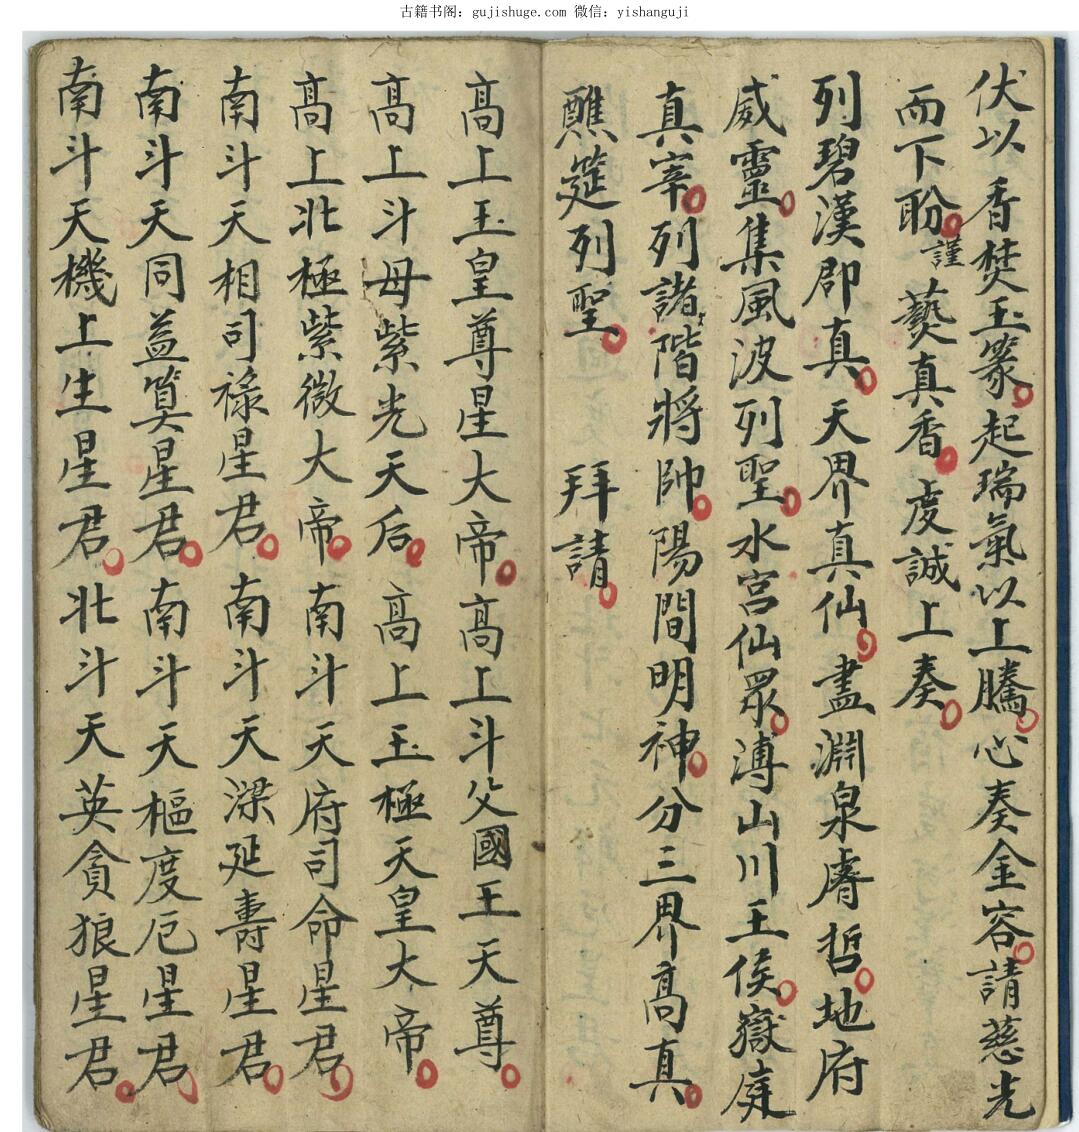 古籍书阁：gujishuge.com 微信：yishanguji
伏以 香焚玉篆起瑞氣以上騰心奏金容請慈光
而下盼謹 爇真香虔誠上奏
列碧漢郡真天界真仙 盡淵泉膚哲地府
威靈集風波列聖水宮仙眾溥山川王侯嶽庭
真宰列諸階將帥陽間明神分三界高真
醮筵列聖 拜請
高上玉皇尊星大帝高上斗父國王天尊
高上斗母紫光天后 高上玉極天皇大帝
高上北極紫微大帝 南斗天府司命星君
南斗天相司祿星君 南斗天梁延壽星君
南斗天同益筭星君 南斗天樞度厄星君
南斗天機上生星君 北斗天英貪狼星君